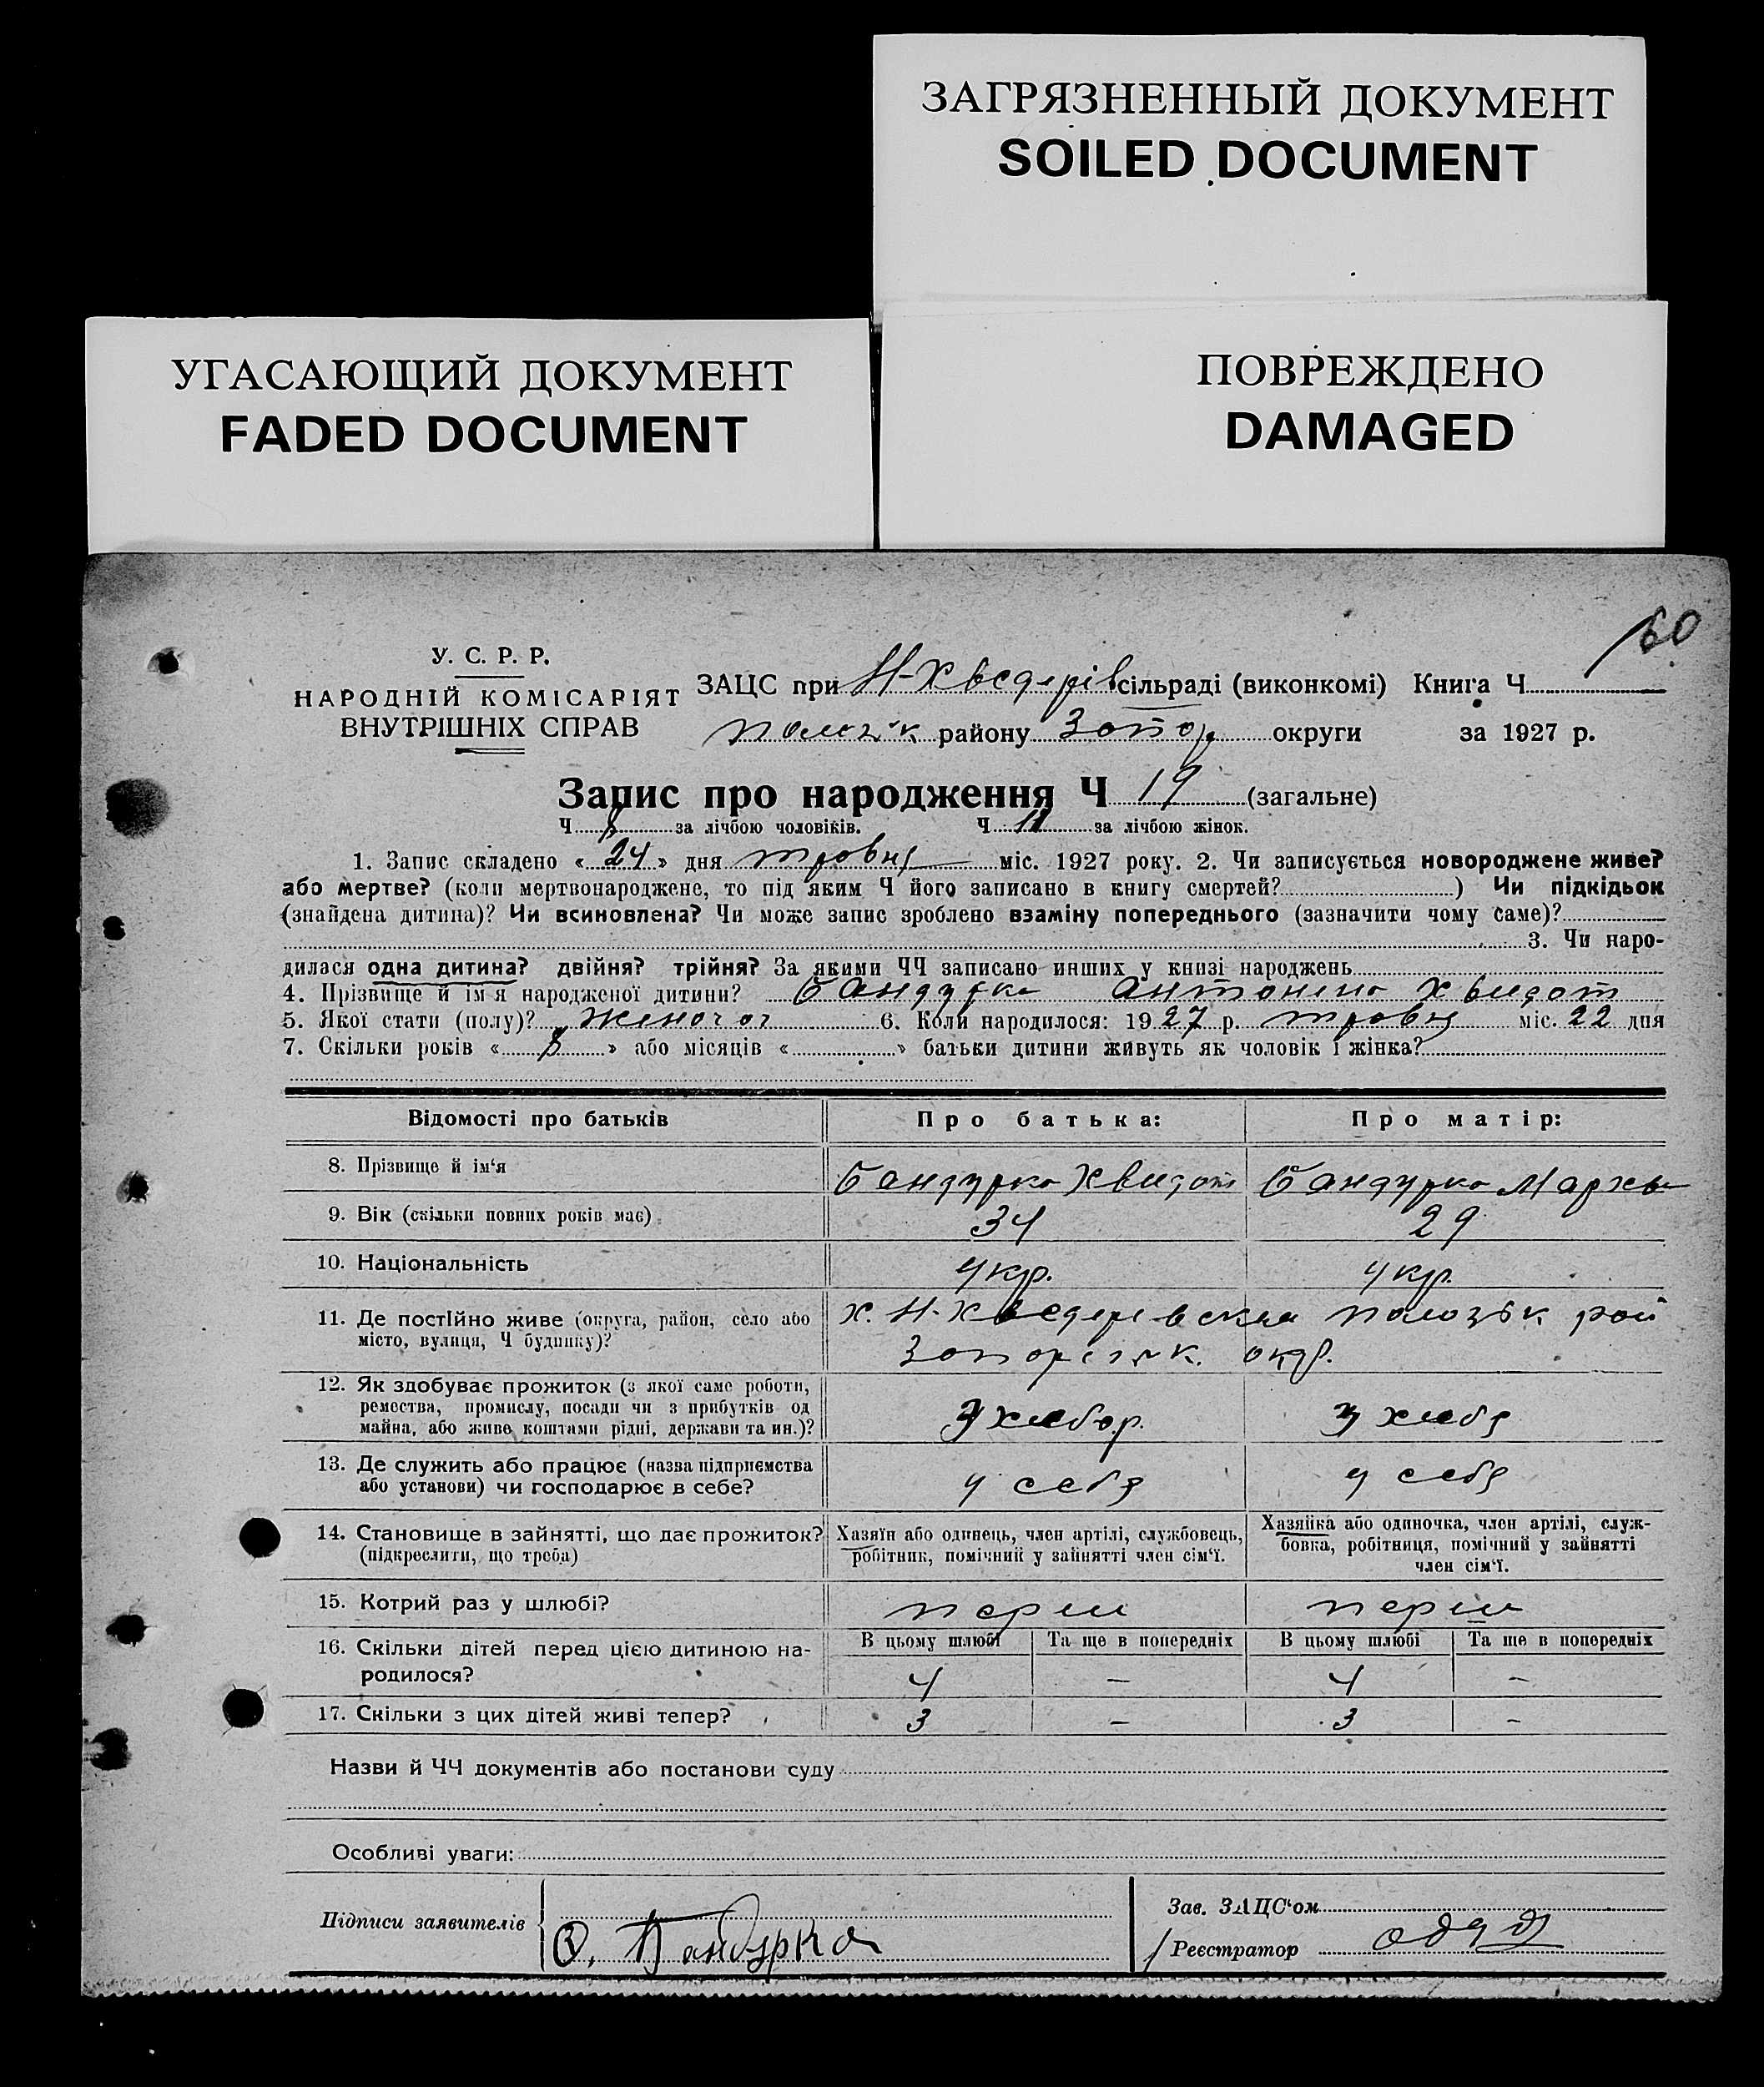 ЗАГРЯЗНЕННЫЙ ДОКУМЕНТ
SOILED DOCUMENT
УГАСАЮЩИЙ ДОКУМЕНТ
FADED DOCUMENT
ПОВРЕЖДЕНО
DAMAGED
160
У. С. Р. Р.
НАРОДНІЙ КОМІСАРІЯТ
ВНУТРІШНІХ СПРАВ
ЗАЦС при Н-Хведерів сільраді (виконкомі) Книга Ч
району Запор округи за 1927 р.
Запис про народження Ч 19 (загальне)
Ч 8 за лічбою чоловіків. Ч 11 за лічбою жінок.
1. Запис складено « 24 » дня травня міс. 1927 року. 2. Чи записується новороджене живе?
або мертве? (коли мертвонароджене, то під яким Ч його записано в книгу смертей? ) Чи підкідьок
(знайдена дитина)? Чи всиновлена? Чи може запис зроблено взаміну попереднього (зазначити чому саме)?
3. Чи наро-
дилася одна дитина? двійня? трійня? За якими ЧЧ записано инших у книзі народжень
4. Прізвище й ім'я народженої дитини? Бандурка Антонина Хвидот
5. Якої стати (полу)? 6. Коли народилося: 1927 р. травня міс. 22 дня
7. Скільки років « 8 » або місяців « » батьки дитини живуть як чоловік і жінка?
Відомості про батьків Про батька: Про матір:
8. Прізвище й ім'я Бандурка Хвидот Бандурка
9. Вік (скільки повних років має) 34 29
10. Національність укр. укр.
11. Де постійно живе (округа, район, село або
місто, вулиця, Ч будинку)?
х. Н-Хведеревська рай
окр.
12. Як здобуває прожиток (з якої саме роботи,
ремества, промислу, посади чи з прибутків од
майна, або живе коштами рідні, держави та ин.)?
З хлебор. З хлеба
13. Де служить або працює (назва підприємства
або установи) чи господарює в себе?
у себя у себя
14. Становище в зайнятті, що дає прожиток?
(підкреслити, що треба)
Хазяїн або одинець, член артілі, службовець,
робітник, помічний у зайнятті член сім'ї.
Хазяйка або одиночка, член артілі, служ-
бовка, робітниця, помічний у зайнятті
член сім'ї.
15. Котрий раз у шлюбі? перш перш
16. Скільки дітей перед цією дитиною на-
родилося?
В цьому шлюбі Та ще в попередніх В цьому шлюбі Та ще в попередніх
4 – 4 –
17. Скільки з цих дітей живі тепер? 3 – 3 –
Назви й ЧЧ документів або постанови суду
Особливі уваги:
Підписи заявителів Ф. Бандурка
Зав. ЗАЦС'ом
Реєстратор